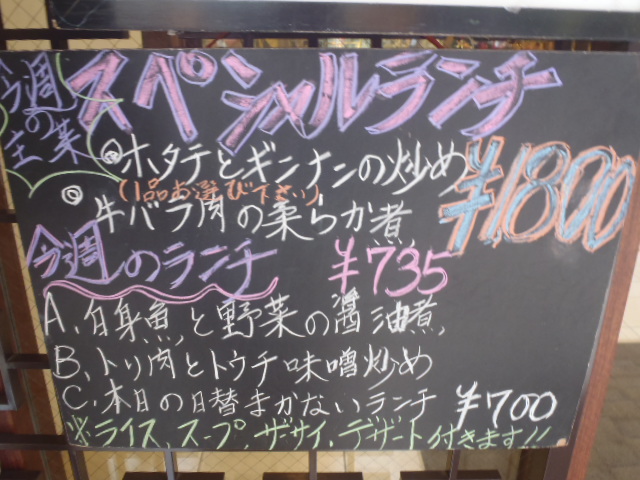 今週の主菜
スペシャルランチ
◎ホタテとギンナンの炒め
(1品お選び下さい)
¥1800
◎牛バラ肉の柔らか煮
今週のランチ ¥735
A、白身魚と野菜の醤油煮
B、トリ肉とトウチ味噌炒め
C、本日の日替まかないランチ ¥700
※ライス、スープ、ザーサイ、デザート付きます!!